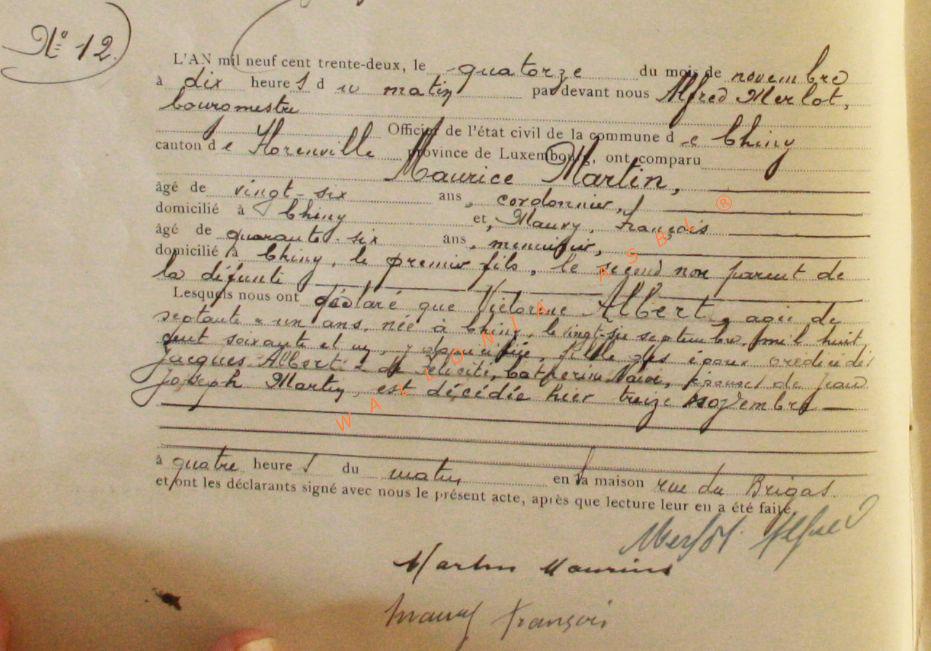 N° 12.
L'AN mil neuf cent trente-deux, le quatorze du mois de novembre
à dix heure s d u matin par devant nous Alfred Merlot,
bourgmestre
Officier de l'état civil de la commune d e Chiny
canton d e Florenville province de Luxembourg, ont comparu
Maurice Martin,
âgé de vingt-six ans, cordonnier,
domicilié à Chiny et, Mauxy, François
âgé de quarante-six ans, menuisier,
domicilié à Chiny, le premier fils, le second non parent de
la défunte
Lesquels nous ont déclaré que Victorine Albert, agée de
septante-un ans, née à Chiny, le vingt-six septembre mil huit
cent soixante et un, y domiciliée, fille des époux
Jacques Albert de Félicité, Catherine épouse de
Joseph Martin, est décédée hier treize novembre
à quatre heure s du matin en sa maison rue du Brigas.
et ont les déclarants signé avec nous le présent acte, après que lecture leur en a été faite.
Merlot Alfred
Martin Maurice
François
WALLONIE ASBL ®